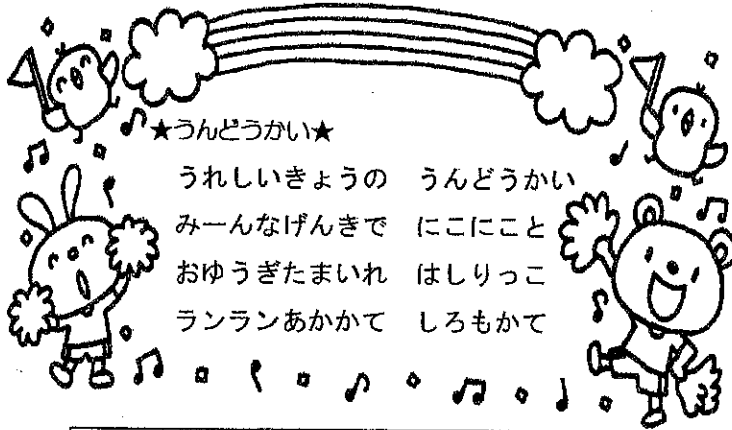 ★うんどうかい★
うれしいきょうの　うんどうかい
みーんなげんきで　にこにこと
おゆうぎたまいれ　はしりっこ
ランランあかかて　しろもかて